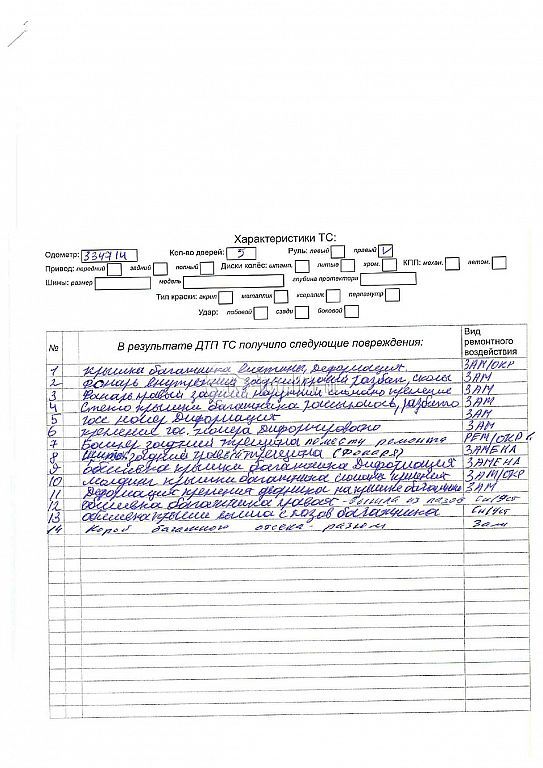 Характеристики ТС:
Одометр: 334714 Кол-во дверей: 5 Руль: левый правый V
Привод: передний задний полный Диски колёс: штамп. литые хром. КПП: механ. автом.
Шины: размер модель глубина протектора
Тип краски: акрил металлик ксералик перламутр
Удар: лобовой сзади боковой
№ В результате ДТП ТС получило следующие повреждения: Вид ремонтного воздействия
1 Крышка багажника вмятины, деформация ЗАМ/ОКР
2 Фонарь внутренний задний правый разбит, сколы ЗАМ
3 Фонарь правый задний наружний сломано крепление ЗАМ
4 Стекло крышки багажника рассыпалось, разбито ЗАМ
5 гос номер Диформация ЗАМ
6 крепление гос. номера Диформировано ЗАМ
7 Бампер задний трещина по месту ремонта РЕМ/ОКР
8 задняя правая трещина (Фонаря) ЗАМЕНА
9 обшивка крышки багажника Диформация ЗАМЕНА
10 молдинг крышки багажника сломаны крепления ЗАМ/ОКР
11 Деформация крепления дворника на крышке багажника ЗАМ
12 обшивка багажника правая - вышла из пазов Сн/Уст
13 обшивка крыши вышла с пазов багажника Сн/Уст
14 Короб багажного отсека - разлом Зам